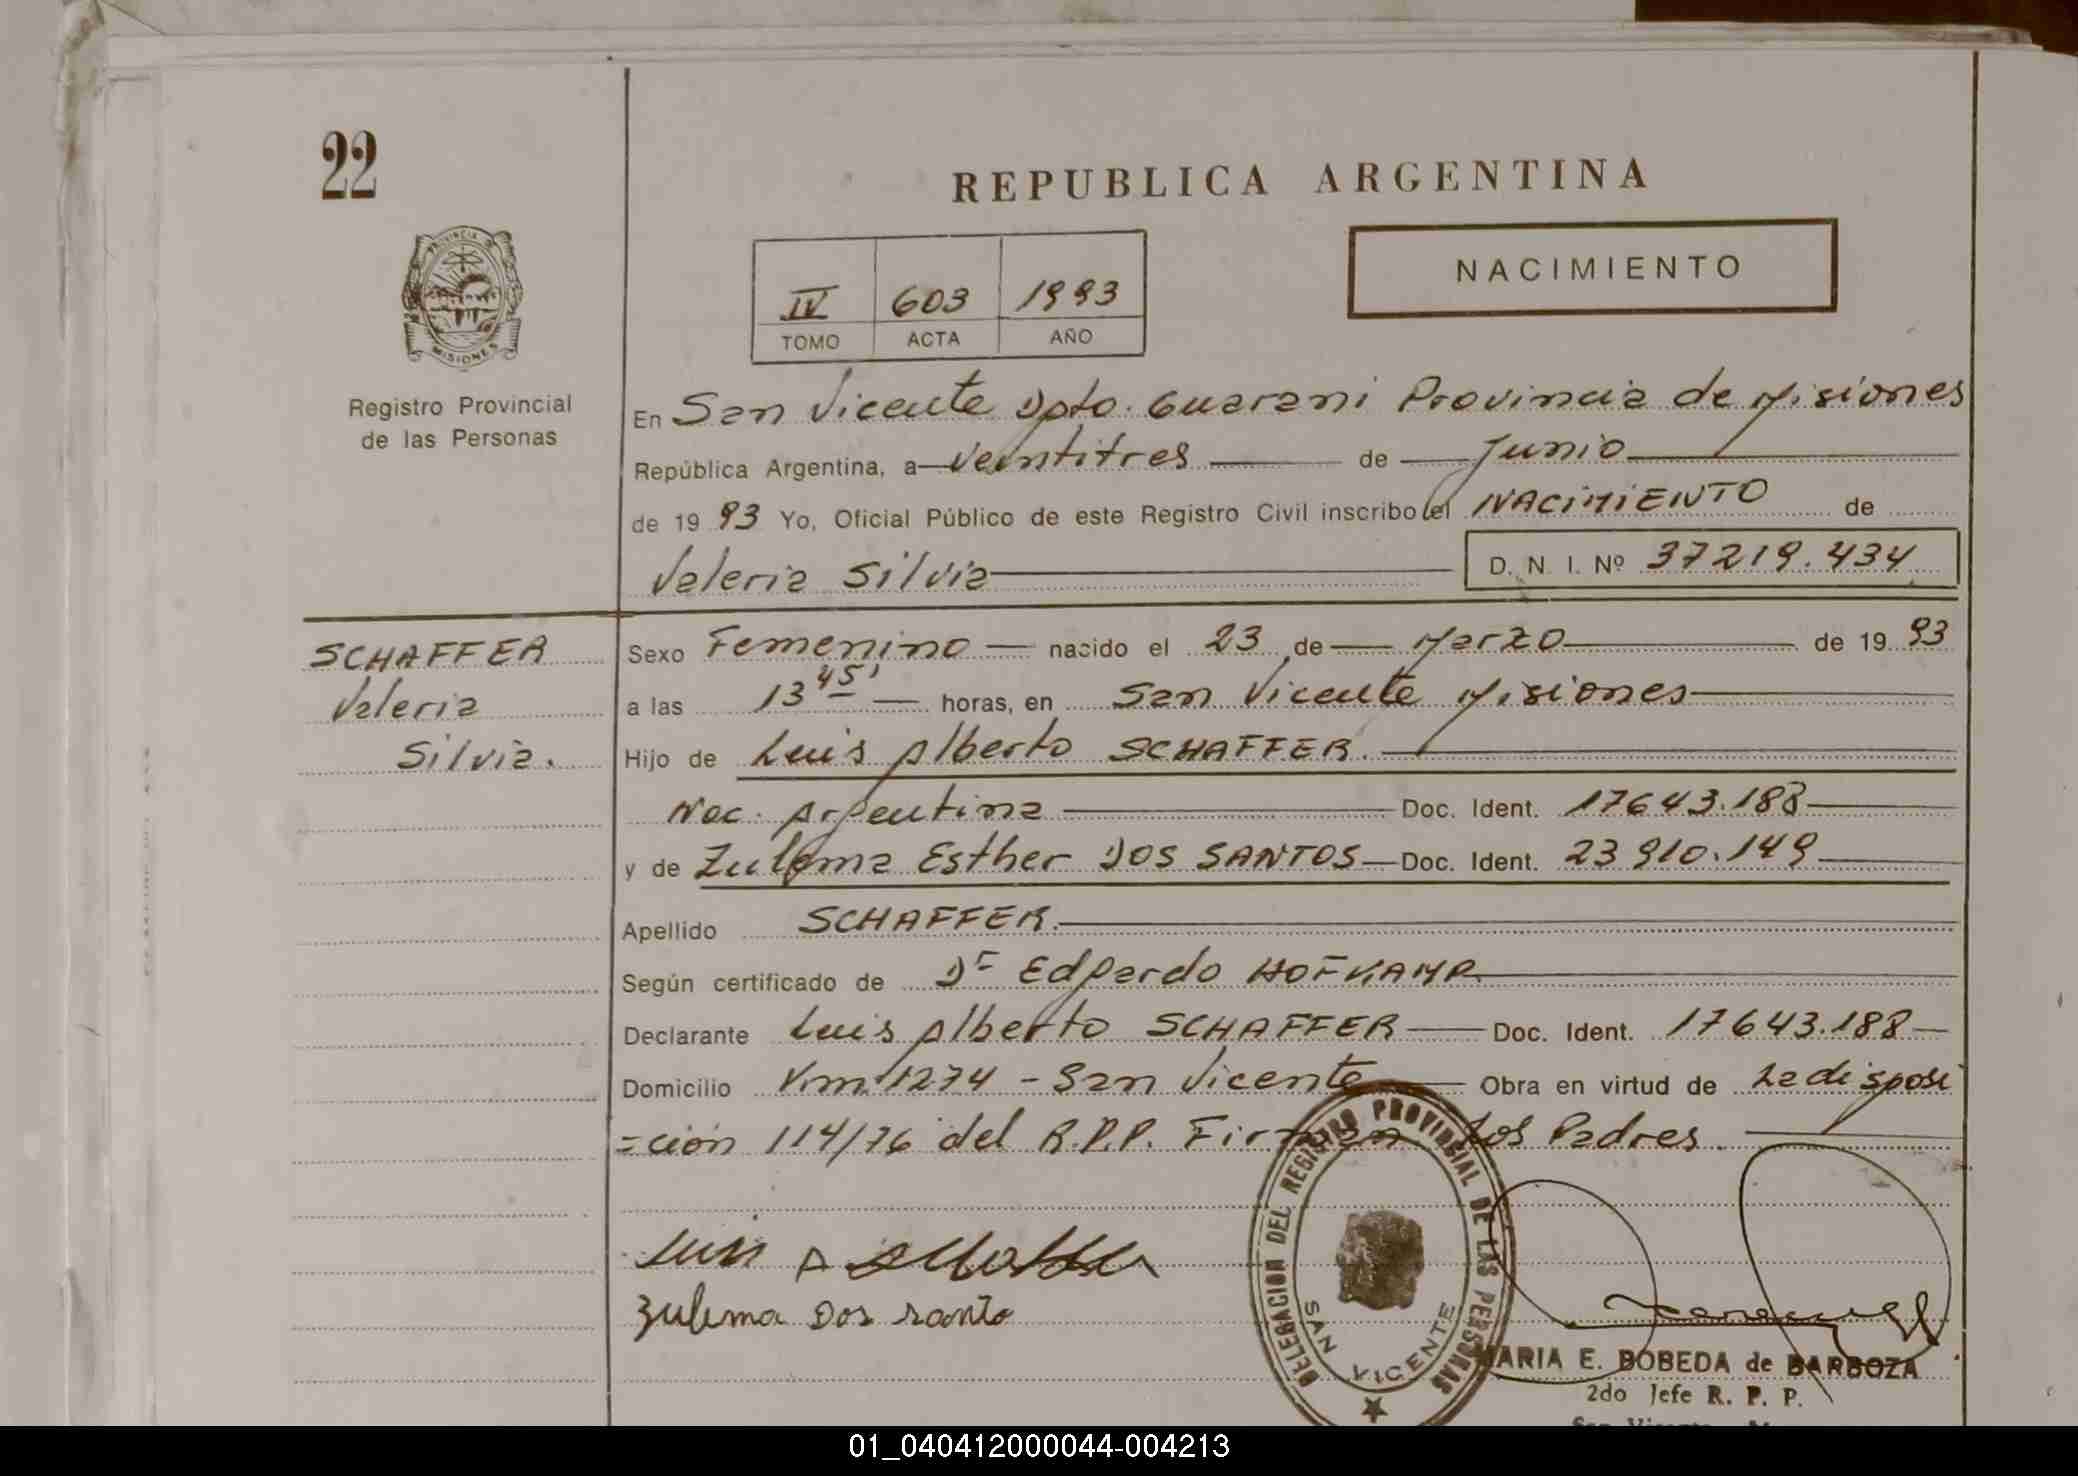 22
REPUBLICA ARGENTINA
PROVINCIA DE
MISIONES
IV 603 1993
TOMO ACTA AÑO
NACIMIENTO
Registro Provincial
de las Personas
En San Vicente Dpto. Guarani Provincia de Misiones
República Argentina, a veintitres de Junio
de 19 93 Yo, Oficial Público de este Registro Civil inscribo el NACIMIENTO de
Valeria Silvia D. N. I. Nº 37219.434
SCHAFFER
Valeria
Silvia.
Sexo Femenino nacido el 23 de Marzo de 19 93
a las 13 45' horas, en San Vicente Misiones
Hijo de Luis Alberto SCHAFFER.
Nac. Argentina Doc. Ident. 17643.188
y de Zulema Esther DOS SANTOS Doc. Ident. 23 910.149
Apellido SCHAFFER.
Según certificado de Dr Edgardo HOFKAMP
Declarante Luis Alberto SCHAFFER Doc. Ident. 17643.188
Domicilio Km 1274 - San Vicente Obra en virtud de La disposi
=ción 114/76 del R.P.P. Firman Los Padres.
Luis A
Zulema Dos santo
DELEGACION DEL REGISTRO PROVINCIAL DE LAS PERSONAS
SAN VICENTE
MARIA E. BOBEDA de BARBOZA
2do Jefe R. P. P.
01_040412000044-004213